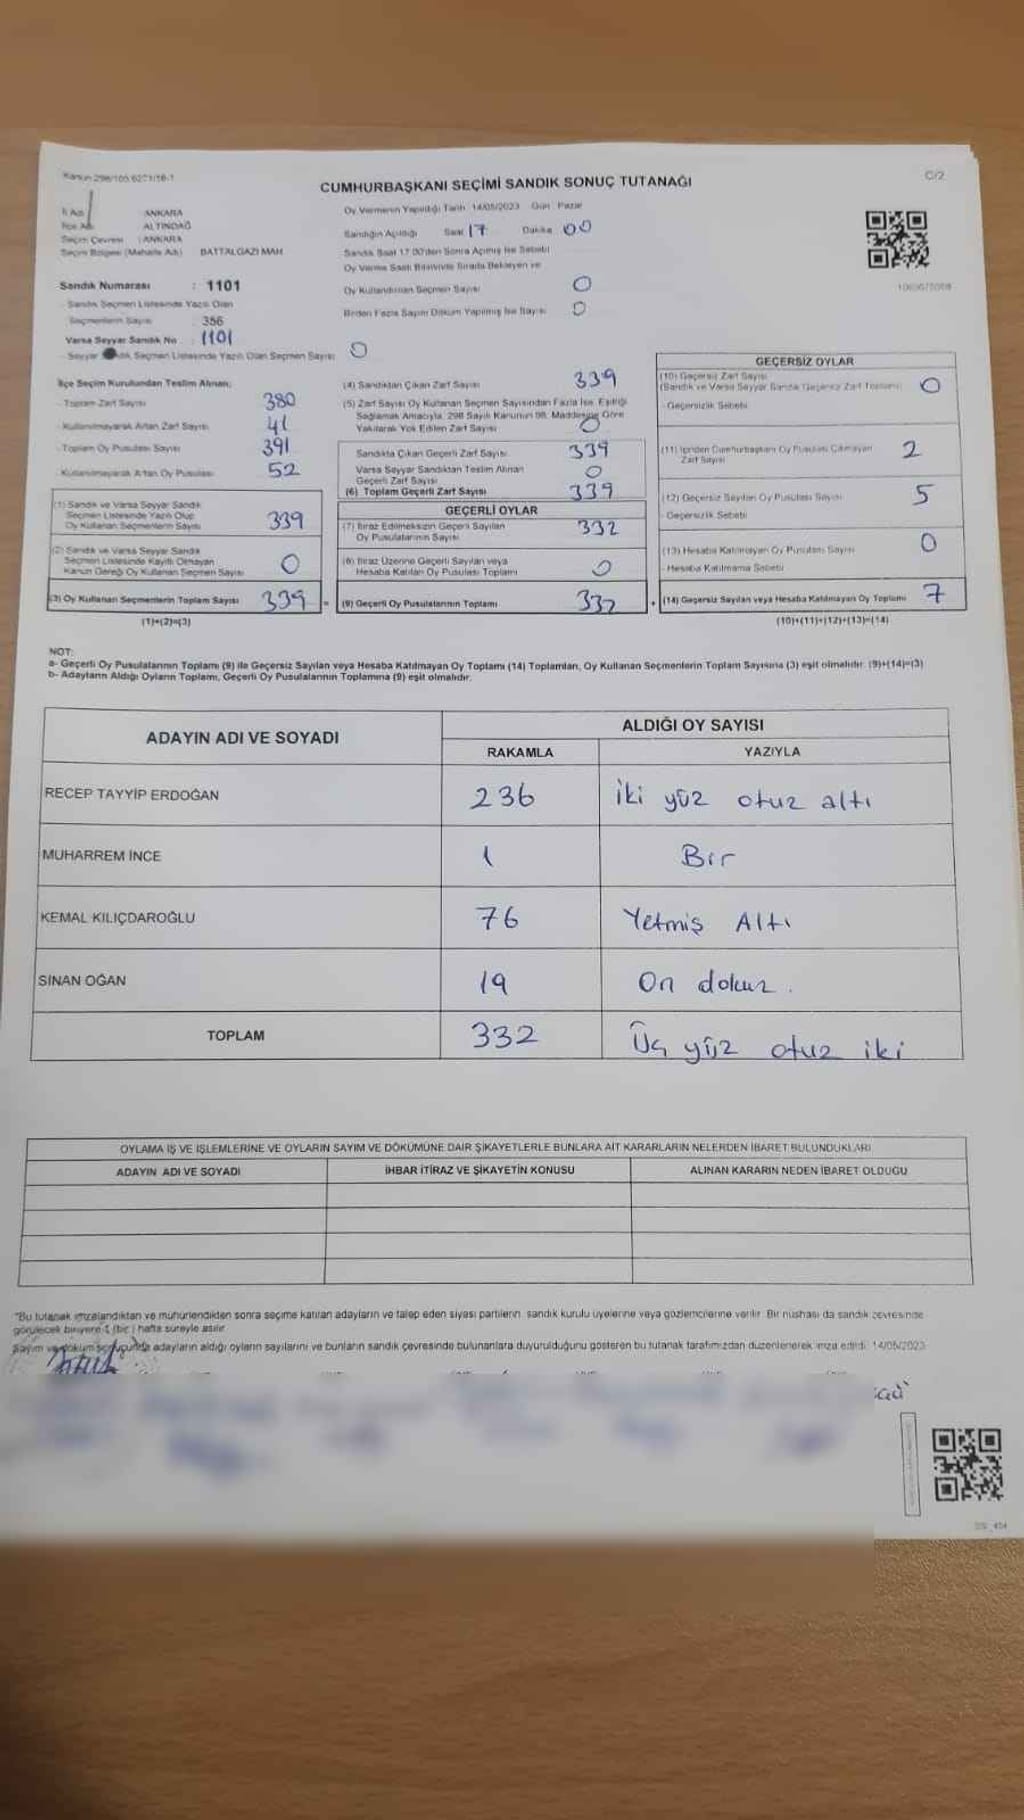 Kanun 298/105
C/2
CUMHURBAŞKANI SEÇİMİ SANDIK SONUÇ TUTANAĞI
İl Adı ANKARA
İlçe Adı ALTINDAĞ
Seçim Çevresi : ANKARA
Seçim Bölgesi (Mahalle Adı) BATTALGAZİ MAH
Sandık Numarası : 1101
Sandık Seçmen Listesinde Yazılı Olan
Seçmenlerin Sayısı 356
Varsa Seyyar Sandık No 1101
Seyyar Seçmen Listesinde Yazılı Olan Seçmen Sayısı 0
Oy Vermenin Yapıldığı Tarih 14/05/2023 Gün Pazar
Sandığın Açıldığı Saat 17 Dakika 00
Sandık Saat 17.00'den Sonra Açılmış İse Sebebi
Oy Verme Saati Bitiminde Sırada Bekleyen ve
Oy Kullandırılan Seçmen Sayısı 0
Birden Fazla Sayım Döküm Yapılmış İse Sayısı 0
İlçe Seçim Kurulundan Teslim Alınan;
Toplam Zarf Sayısı 380
Kullanılmayarak Artan Zarf Sayısı 41
Toplam Oy Pusulası Sayısı 391
Kullanılmayarak Artan Oy Pusulası 52
(1) Sandık ve Varsa Seyyar Sandık
Seçmen Listesinde Yazılı Olup
Oy Kullanan Seçmenlerin Sayısı 339
(2) Sandık ve Varsa Seyyar Sandık
Seçmen Listesinde Kayıtlı Olmayan
Kanun Gereği Oy Kullanan Seçmen Sayısı 0
(3) Oy Kullanan Seçmenlerin Toplam Sayısı 339
(1)+(2)=(3)
(4) Sandıktan Çıkan Zarf Sayısı 339
(5) Zarf Sayısı Oy Kullanan Seçmen Sayısından Fazla İse, Eşitliği
Sağlamak Amacıyla, 298 Sayılı Kanunun 98. Maddesine Göre
Yakılarak Yok Edilen Zarf Sayısı 0
Sandıkta Çıkan Geçerli Zarf Sayısı 339
Varsa Seyyar Sandıktan Teslim Alınan
Geçerli Zarf Sayısı 0
(6) Toplam Geçerli Zarf Sayısı 339
GEÇERLİ OYLAR
(7) İtiraz Edilmeksizin Geçerli Sayılan
Oy Pusulalarının Sayısı 332
(8) İtiraz Üzerine Geçerli Sayılan veya
Hesaba Katılan Oy Pusulası Toplamı 0
= (9) Geçerli Oy Pusulalarının Toplamı 332
GEÇERSİZ OYLAR
(10) Geçersiz Zarf Sayısı
(Sandık ve Varsa Seyyar Sandık Geçersiz Zarf Toplamı) 0
Geçersizlik Sebebi
(11) İçinden Cumhurbaşkanı Oy Pusulası Çıkmayan
Zarf Sayısı 2
(12) Geçersiz Sayılan Oy Pusulası Sayısı 5
Geçersizlik Sebebi
(13) Hesaba Katılmayan Oy Pusulası Sayısı 0
Hesaba Katılmama Sebebi
+ (14) Geçersiz Sayılan veya Hesaba Katılmayan Oy Toplamı 7
(10)+(11)+(12)+(13)=(14)
NOT:
a- Geçerli Oy Pusulalarının Toplamı (9) ile Geçersiz Sayılan veya Hesaba Katılmayan Oy Toplamı (14) Toplamları, Oy Kullanan Seçmenlerin Toplam Sayısına (3) eşit olmalıdır. (9)+(14)=(3)
b- Adayların Aldığı Oyların Toplamı, Geçerli Oy Pusulalarının Toplamına (9) eşit olmalıdır.
ADAYIN ADI VE SOYADI
ALDIĞI OY SAYISI
RAKAMLA YAZIYLA
RECEP TAYYİP ERDOĞAN 236 iki yüz otuz altı
MUHARREM İNCE 1 Bir
KEMAL KILIÇDAROĞLU 76 Yetmiş Altı
SİNAN OĞAN 19 On dokuz.
TOPLAM 332 Üç yüz otuz iki
OYLAMA İŞ VE İŞLEMLERİNE VE OYLARIN SAYIM VE DÖKÜMÜNE DAİR ŞİKAYETLERLE BUNLARA AİT KARARLARIN NELERDEN İBARET BULUNDUKLARI
ADAYIN ADI VE SOYADI İHBAR İTİRAZ VE ŞİKAYETİN KONUSU ALINAN KARARIN NEDEN İBARET OLDUĞU
"Bu tutanak imzalandıktan ve mühürlendikten sonra seçime katılan adayların ve talep eden siyasi partilerin, sandık kurulu üyelerine veya gözlemcilerine verilir. Bir nüshası da sandık çevresinde
görülecek bir yere 1 (bir) hafta süreyle asılır.
Sayım ve döküm sonucunda adayların aldığı oyların sayılarını ve bunların sandık çevresinde bulunanlara duyurulduğunu gösteren bu tutanak tarafımızdan düzenlenerek imza edildi. 14/05/2023